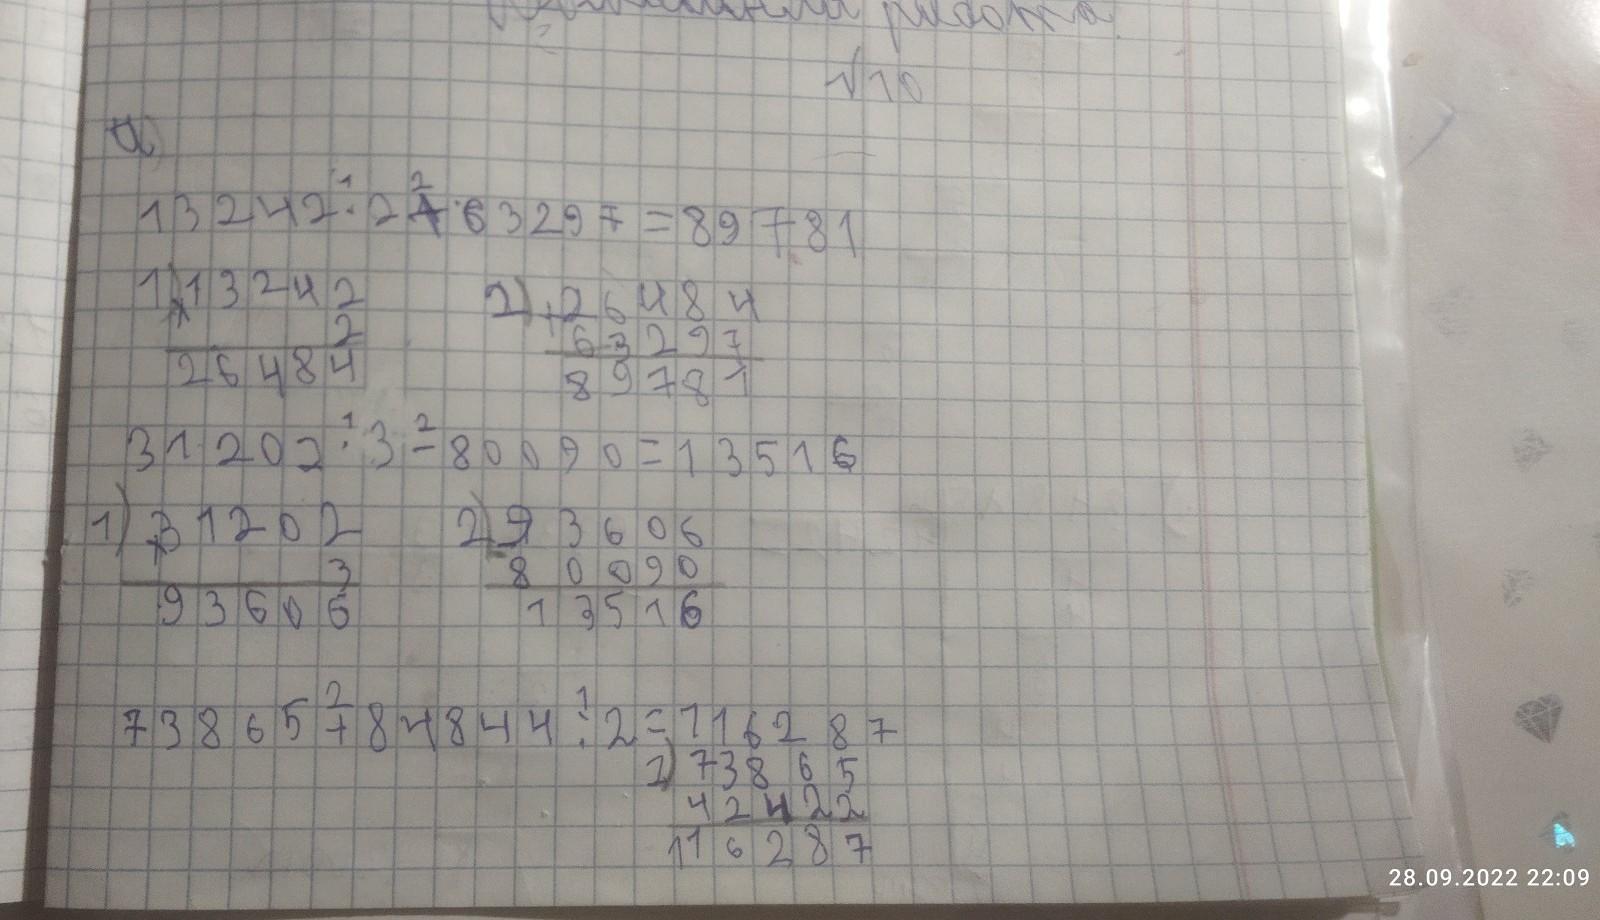 работа.
√10
а)
1 2
13242·2+63297=89781
1) 13242 2) 26484
× 2 + 63297
26484 89781
1 2
31202·3-80090=13516
1) 31202 2) 93606
× 3 - 80090
93606 13516
2 1
73865+84844:2=116287
2) 73865
42422
116287
28.09.2022 22:09